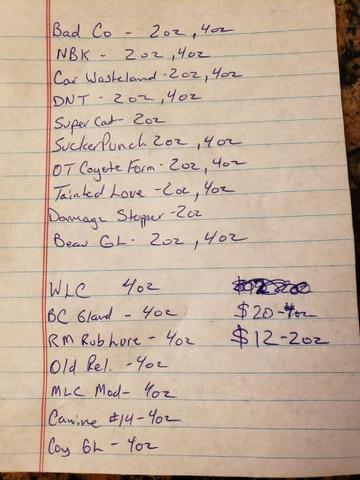 Bad Co - 2oz, 4oz
NBK - 2oz, 4oz
Car Wasteland - 2oz, 4oz
DNT - 2oz, 4oz
Super Cat - 2oz
SuckerPunch 2oz, 4oz
OT Coyote Form - 2oz, 4oz
Tainted Love - 2oz, 4oz
Damage Stopper - 2oz
Beav GL - 2oz, 4oz
WLC 4oz
BC Gland - 4oz $20 - 4oz
RM Rub Lure - 4oz $12 - 2oz
Old Rel. - 4oz
MLC Mod - 4oz
Canine #14 - 4oz
Coy GL - 4oz